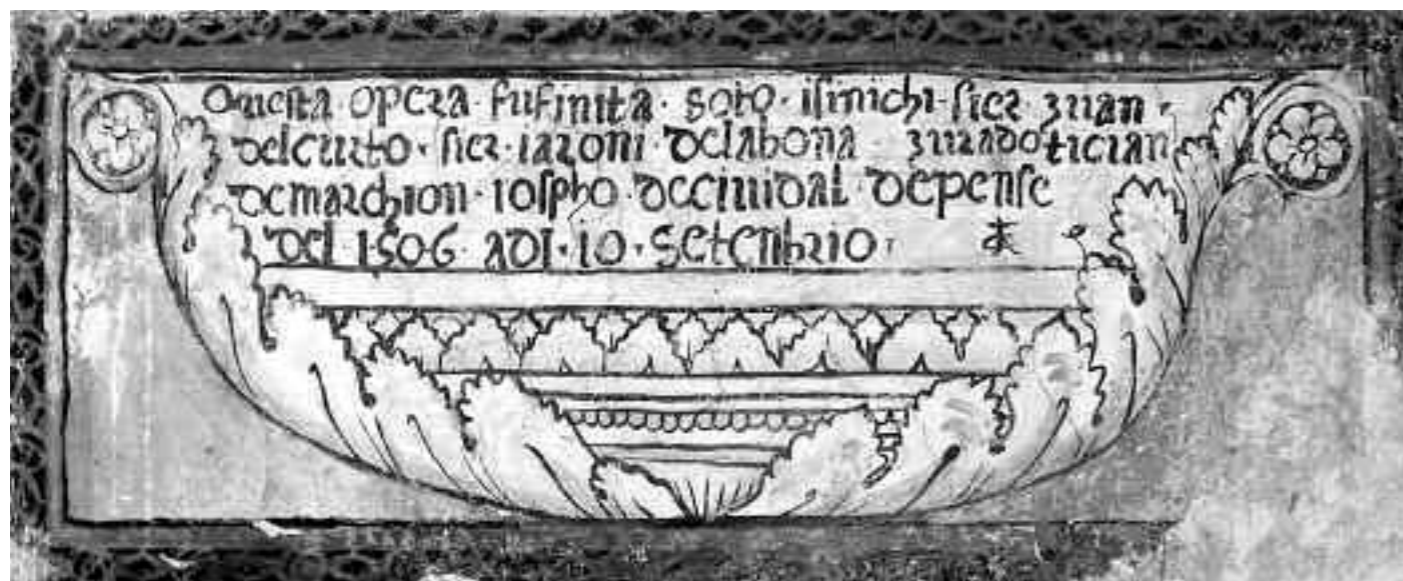 Questa · opera · fu finita · soto · isinichi · sier zuan ·
del curto · sier · iaroni · dela bona zurado tician
de marchion · iospho · de cividal de pense
del 1506 · adi · 10 · setenbrio ·